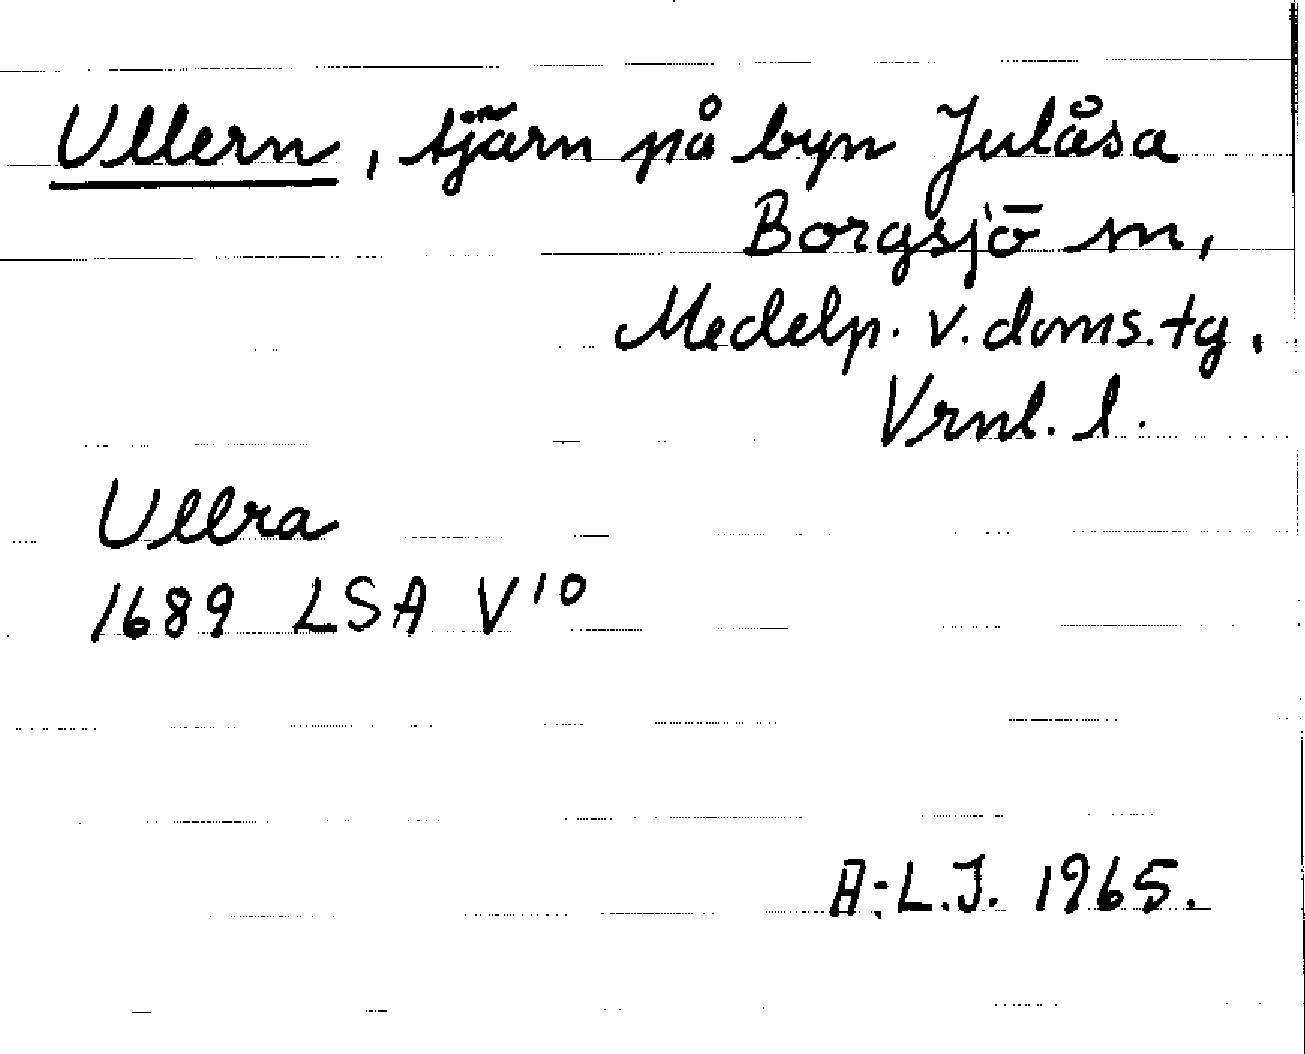 Ullern, tjärn på byn Julåsa
Borgsjö sn,
Medelp. v. doms.tg.
Vrnl. l.
Ullra
1689 LSA V 10
A:-L.J. 1965.